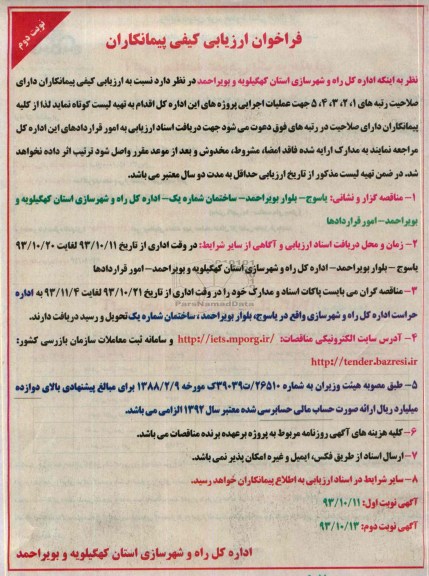 نوبت دوم
فراخوان ارزیابی کیفی پیمانکاران
نظر به اینکه اداره کل راه و شهرسازی استان کهگیلویه و بویراحمد در نظر دارد نسبت به ارزیابی کیفی پیمانکاران دارای
صلاحیت رتبه های ۱، ۲، ۳، ۴، ۵ جهت عملیات اجرایی پروژه های این اداره کل اقدام به تهیه لیست کوتاه نماید لذا از کلیه
پیمانکاران دارای صلاحیت در رتبه های فوق دعوت می شود جهت دریافت اسناد ارزیابی به امور قراردادهای این اداره کل
مراجعه نمایند به مدارک ارایه شده فاقد امضا، مشروط، مخدوش و بعد از موعد مقرر واصل شود ترتیب اثر داده نخواهد
شد. در ضمن تهیه لیست مذکور از تاریخ ارزیابی حداقل به مدت دو سال معتبر می باشد.
۱- مناقصه گزار و نشانی: یاسوج- بلوار بویراحمد- ساختمان شماره یک- اداره کل راه و شهرسازی استان کهگیلویه و
بویراحمد- امور قراردادها
۲- زمان و محل دریافت اسناد ارزیابی و آگاهی از سایر شرایط: در وقت اداری از تاریخ ۹۳/۱۰/۱۱ لغایت ۹۳/۱۰/۲۰
یاسوج - بلوار بویراحمد- اداره کل راه و شهرسازی استان کهگیلویه و بویراحمد- امور قراردادها
ParsNamadData
۳- مناقصه گران می بایست پاکات اسناد و مدارک خود را در وقت اداری از تاریخ ۹۳/۱۰/۲۱ لغایت ۹۳/۱۱/۴ به اداره
حراست اداره کل راه و شهرسازی واقع در یاسوج، بلوار بویراحمد، ساختمان شماره یک تحویل و رسید دریافت دارند.
۴- آدرس سایت الکترونیکی مناقصات: http://iets.mporg.ir/ و سامانه ثبت معاملات سازمان بازرسی کشور:
http://tender.bazresi.ir
۵- طبق مصوبه هیئت وزیران به شماره ۲۶۵۱۰/ت۳۹۰۳۹ک مورخه ۱۳۸۸/۲/۹ برای مبالغ پیشنهادی بالای دوازده
میلیارد ریال ارائه صورت حساب مالی حسابرسی شده معتبر سال ۱۳۹۲ الزامی می باشد.
۶- کلیه هزینه های آگهی روزنامه مربوط به پروژه بر عهده برنده مناقصات می باشد.
۷- ارسال اسناد از طریق فکس، ایمیل و غیره امکان پذیر نمی باشد.
۸- سایر شرایط در اسناد ارزیابی به اطلاع پیمانکاران خواهد رسید.
آگهی نوبت اول: ۹۳/۱۰/۱۱
آگهی نوبت دوم: ۹۳/۱۰/۱۳
اداره کل راه و شهرسازی استان کهگیلویه و بویراحمد